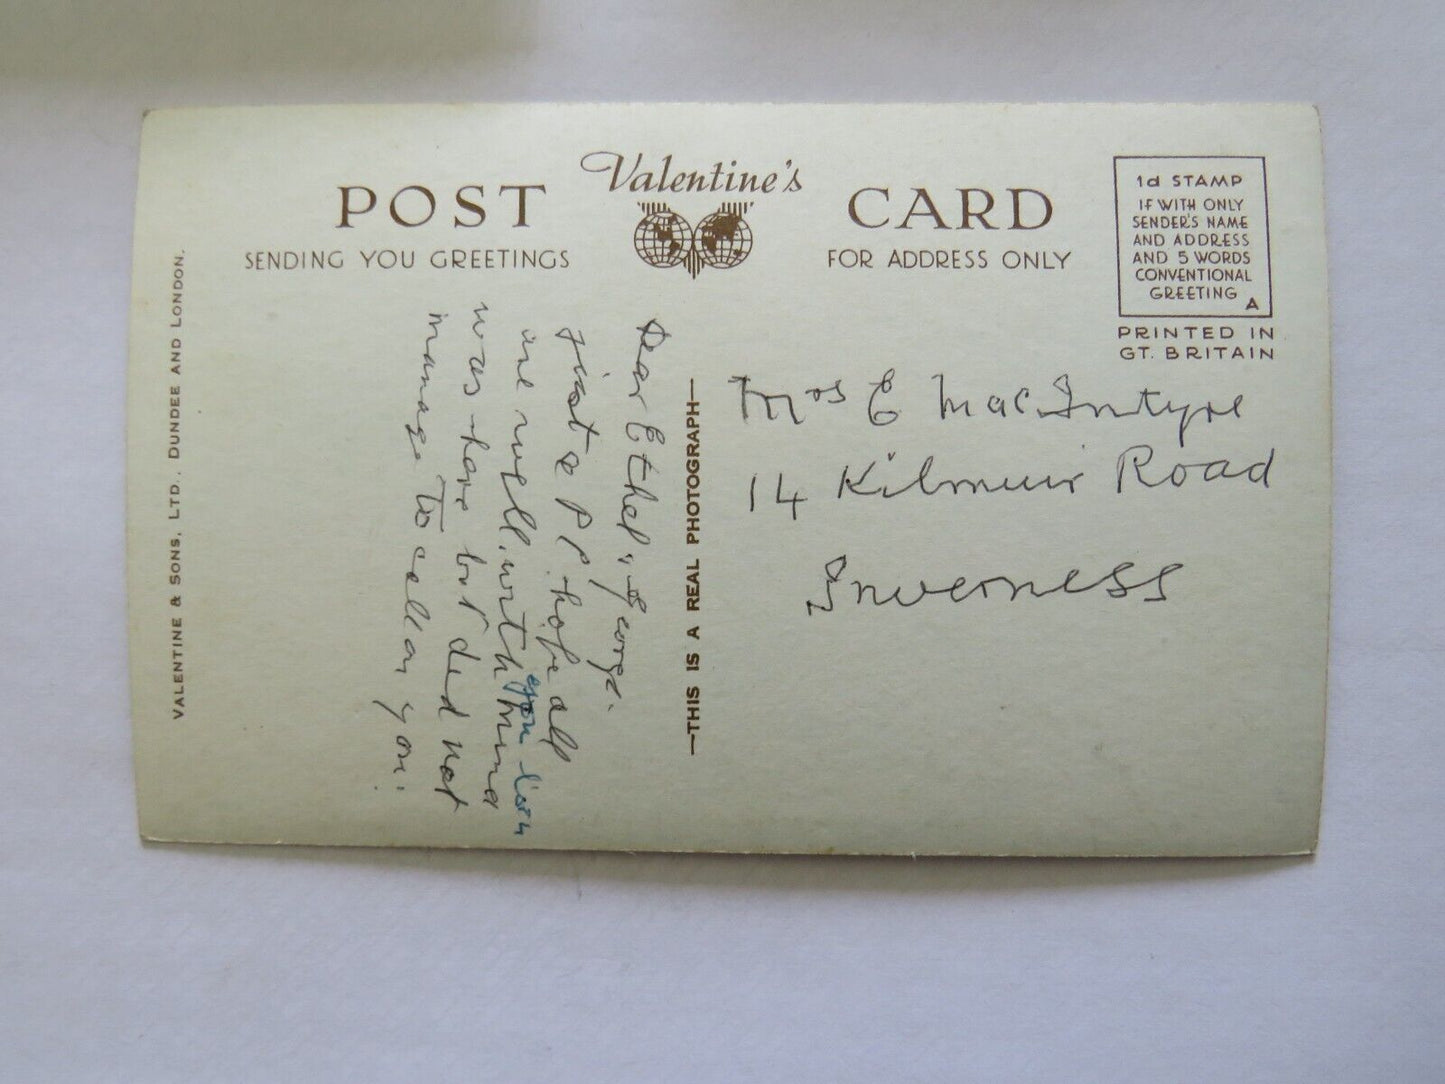 POST Valentine's CARD
SENDING YOU GREETINGS
FOR ADDRESS ONLY
1d STAMP
IF WITH ONLY
SENDER'S NAME
AND ADDRESS
AND 5 WORDS
CONVENTIONAL
GREETING
A
PRINTED IN
GT. BRITAIN
VALENTINE & SONS, LTD., DUNDEE AND LONDON.
Dear Ethel & George.
just a P P. hope all
are well.
was here but ded not
manage to call on you.
—THIS IS A REAL PHOTOGRAPH—
Mrs E MacIntyre
14 Kilmuir Road
Inverness